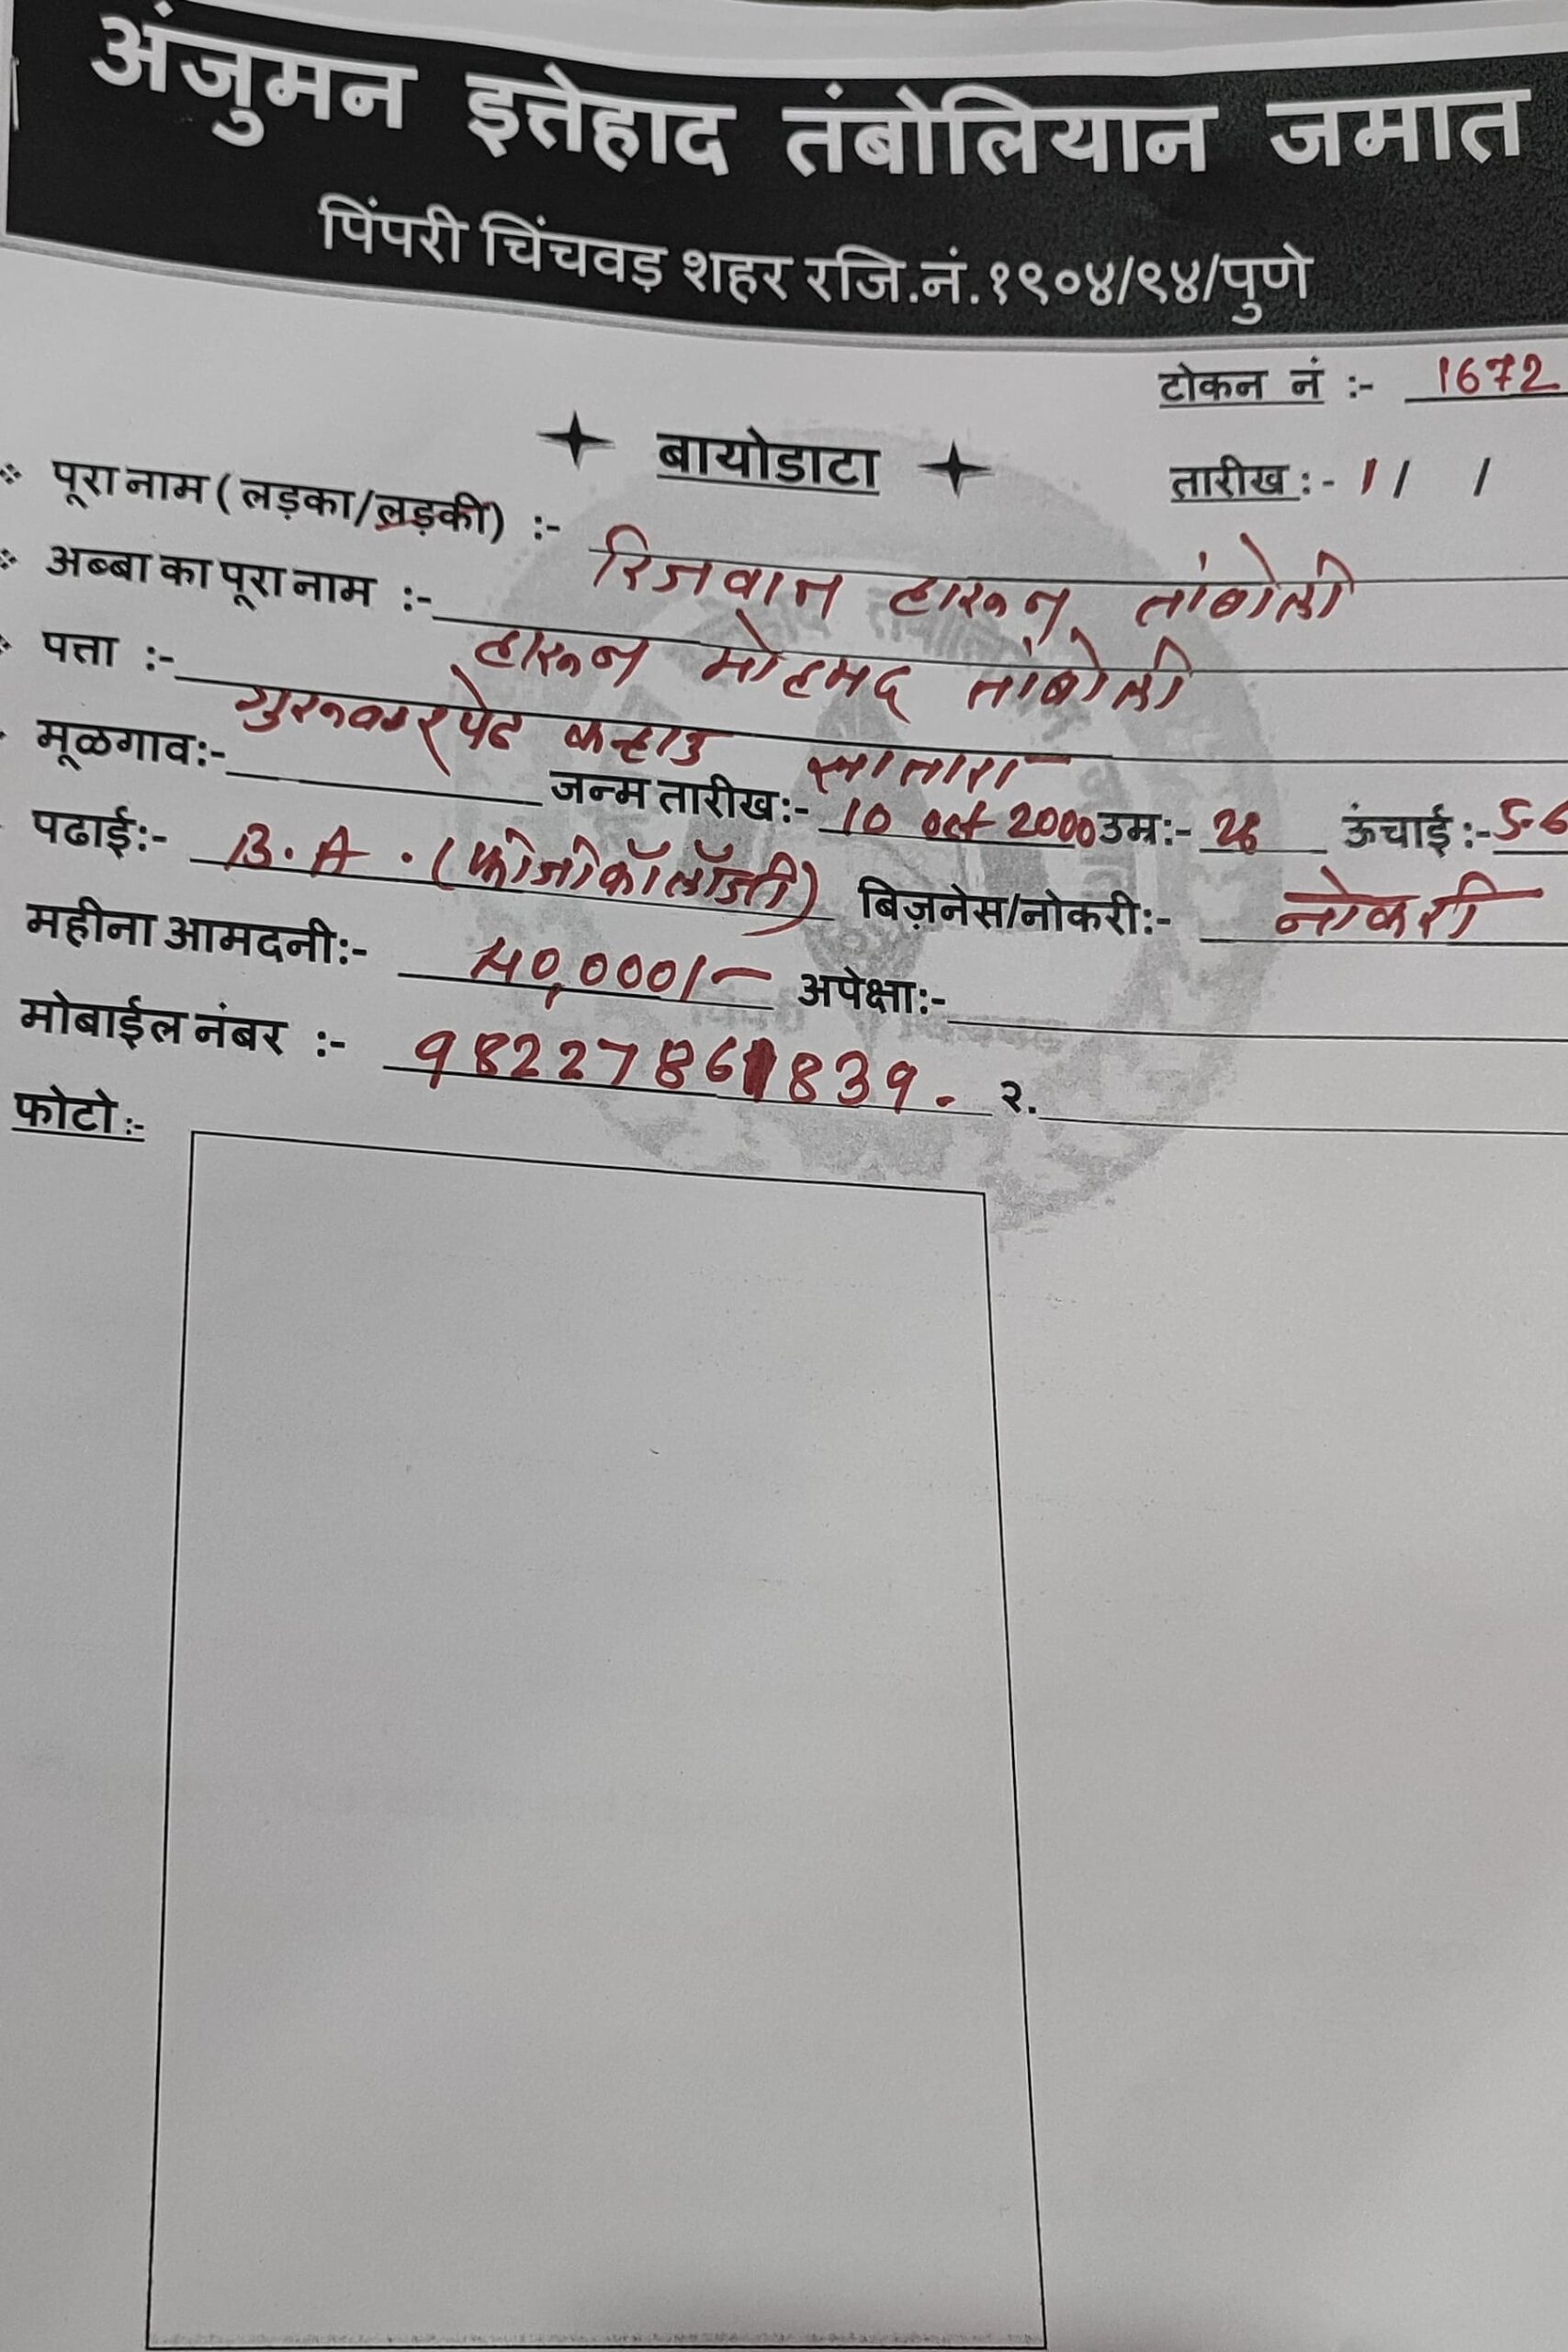 अंजुमन इत्तेहाद तंबोलियान जमात
पिंपरी चिंचवड़ शहर रजि.नं.१९०४/९४/पुणे
टोकन नं :- 1672
बायोडाटा
तारीख :- 1/ /
पूरा नाम ( लड़का/लड़की) :- रिजवान हारून तांबोली
अब्बा का पूरा नाम :- हारून मोहमद तांबोली
पत्ता :- गुरूवार पेठ कऱ्हाड सातारा
मूळगाव:- जन्म तारीख:- 10 oct 2000 उम्र:- 26 ऊंचाई :- 5-6
पढाई:- B.A. बिज़नेस/नोकरी:- नोकरी
महीना आमदनी:- 40,000/- अपेक्षा:-
मोबाईल नंबर :- 9822786839. २.
फोटो :-